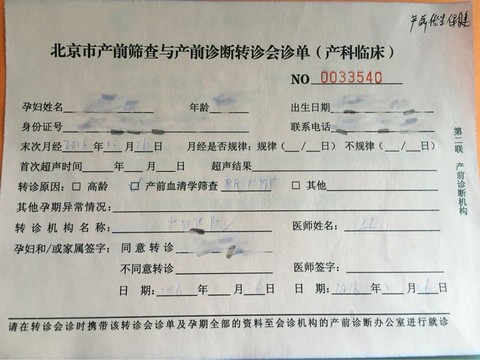 产前优生保健
北京市产前筛查与产前诊断转诊会诊单（产科临床）
NO 0033540
孕妇姓名 年龄 出生日期
身份证号 联系电话
末次月经 2016年 月 日 月经是否规律：规律（__/__日） 不规律（__/__日）
首次超声时间 年 月 日 超声结果
转诊原因：□ 高龄 □ 产前血清学筛查 □ 其他
其他孕期异常情况：
转诊机构名称： 医师姓名：
孕妇和/或家属签字：同意转诊
不同意转诊 医师签字：
日 期：2016年 月 6日 日 期：2016年 月 6日
请在转诊会诊时携带该转诊会诊单及孕期全部的资料至会诊机构的产前诊断办公室进行就诊
第二联 产前诊断机构